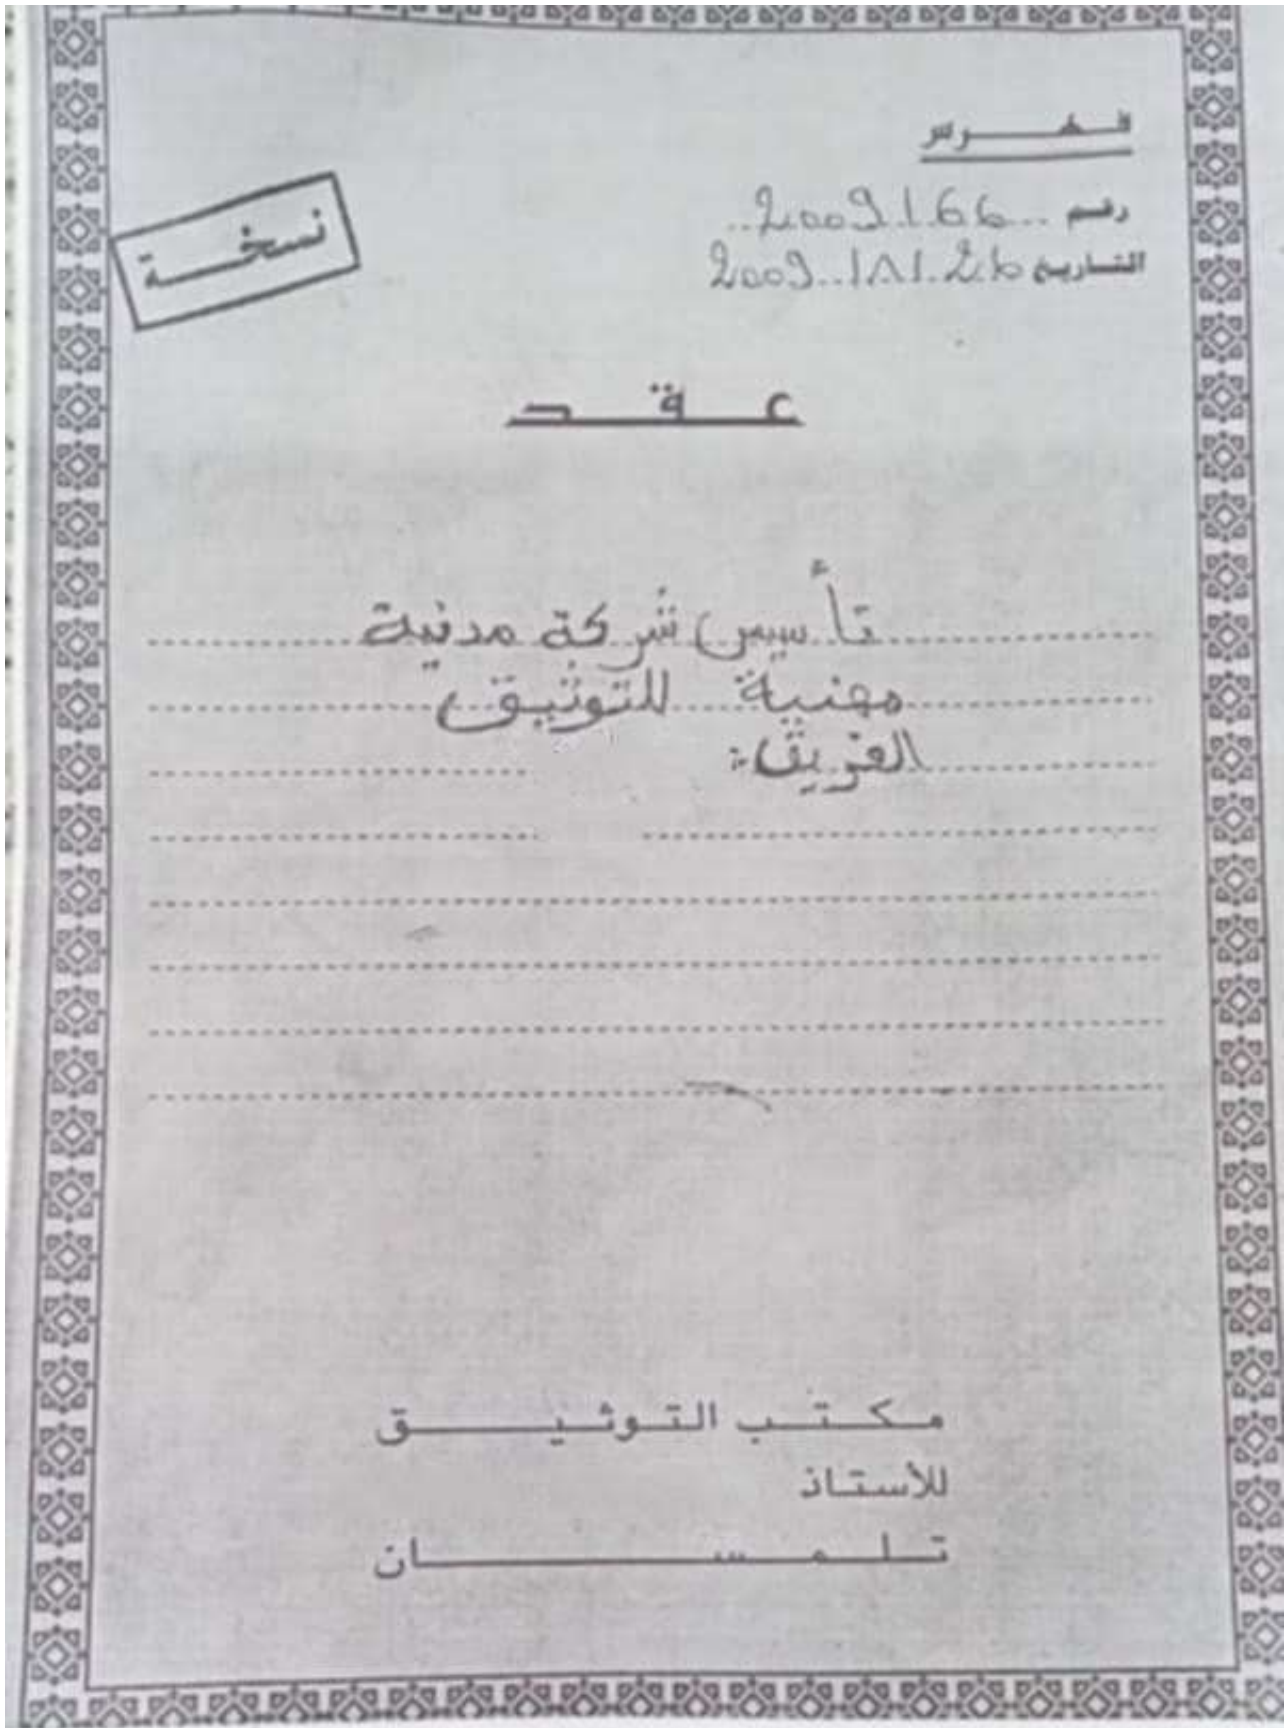 فهرس
رقم 2009/66
التاريخ 2009/01/26
نسخة
عقد
تأسيس شركة مدنية
مهنية للتوثيق
الفريق:
مكتب التوثيق
للأستاذ
تلمسان